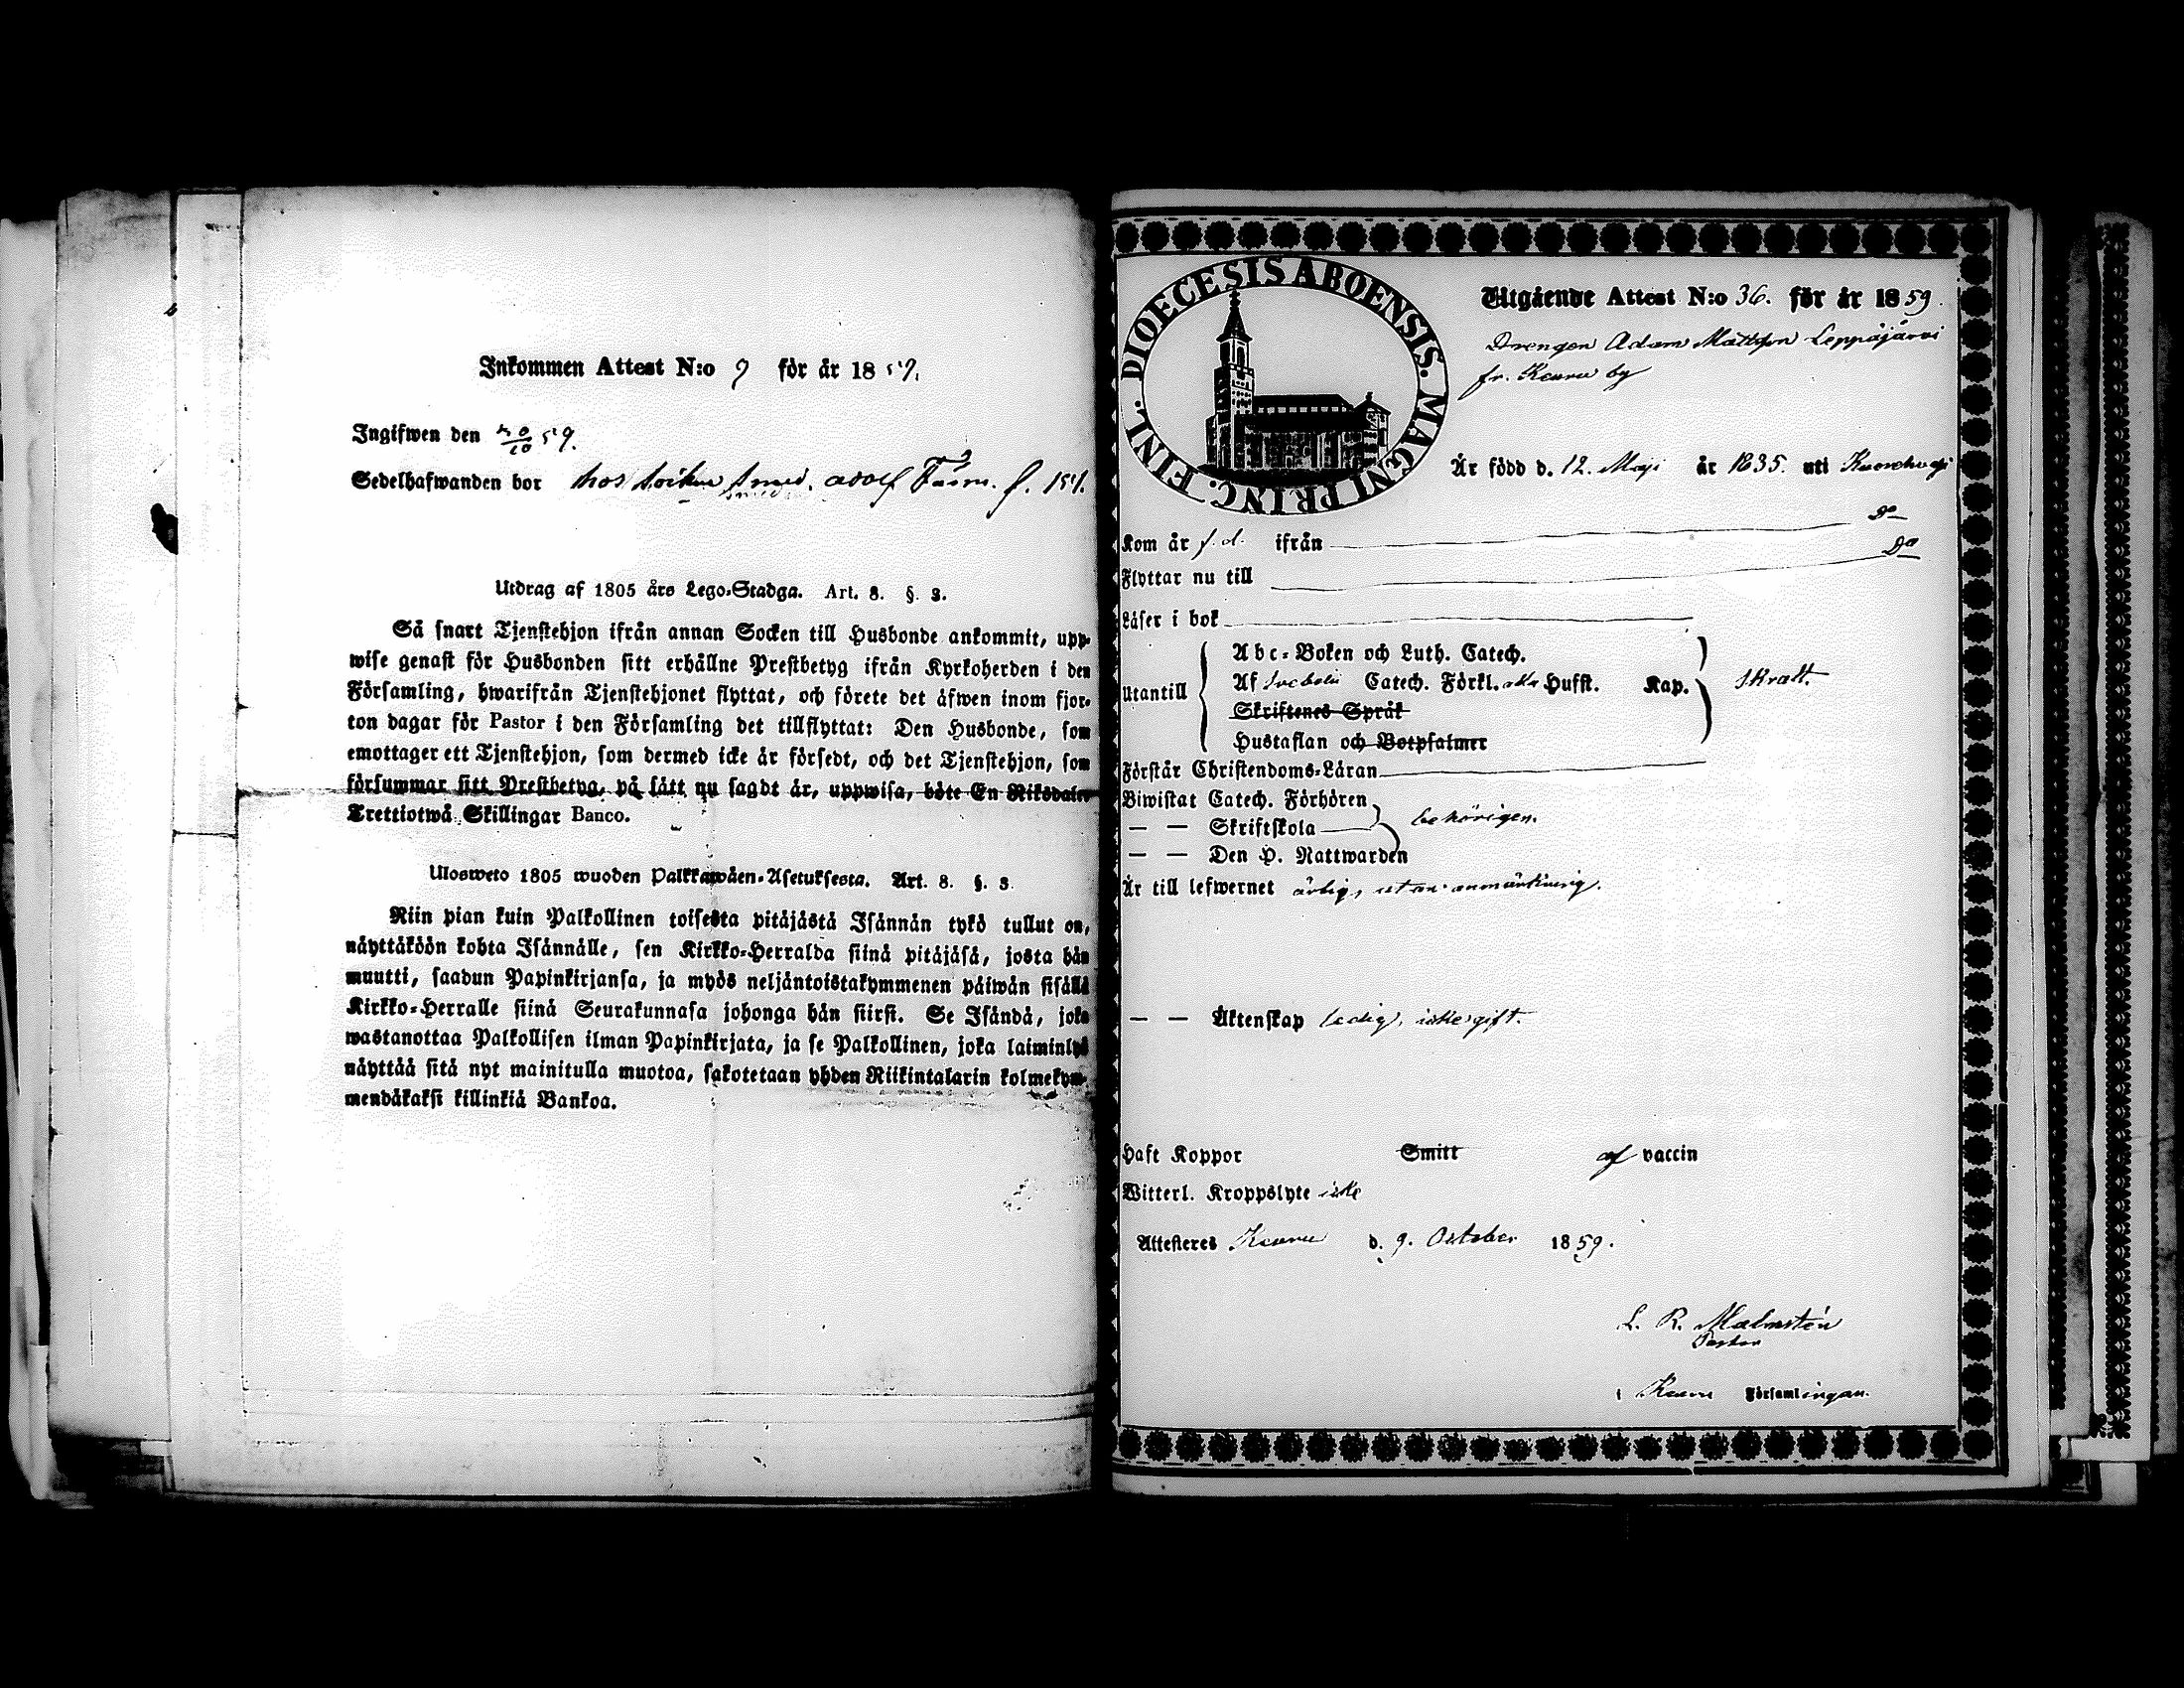 Inkommen Attest N:o 9 för år 1859.
Ingifwen den 20/10 59.
Sedelhafwanden bor hos socken smed. Adolf f. 151.
Utdrag af 1805 års Lego-Stadga. Art. 8. §. 3.
Så snart Tjenstehjon ifrån annan Socken till Husbonde ankommit, upp-
wise genast för Husbonden sitt erhållne Prestbetyg ifrån Kyrkoherden i den
Församling, hwarifrån Tjenstehjonet flyttat, och förete det äfwen inom fjor-
ton dagar för Pastor i den Församling det tillflyttat: Den Husbonde, som
emottager ett Tjenstehjon, som dermed icke är försedt, och det Tjenstehjon, som
försummar sitt Prestbetyg, på sätt nu sagdt är, uppwisa, böte En Riksdaler
Trettiotwå Skillingar Banco.
Ulosweto 1805 wuoden Palkkawäen-Asetuksesta. Art. 8. §. 3.
Niin pian kuin Palkollinen toisesta pitäjästä Isännän tykö tullut on,
näyttäköön kohta Isännälle, sen Kirkko-Herralda siinä pitäjäsä, josta hän
muutti, saadun Papinkirjansa, ja myös neljäntoistakymmenen päiwän sisällä
Kirkko-Herralle siinä Seurakunnasa johonga hän siirsi. Se Isändä, joka
wastanottaa Palkollisen ilman Papinkirjata, ja se Palkollinen, joka laiminlyö
näyttää sitä nyt mainitulla muotoa, sakotetaan yhden Riikintalarin kolmekym-
mendäkaksi killinkiä Bankoa.
DIOECESIS ABOENSIS. MAGNI PRINC. FINL.
Utgående Attest N:o 36. för år 1859.
Drengen Adam Mattsson Leppäjärvi
fr. Keuru by
Är född d. 12. Maji år 1835. uti
Kom år f.d. ifrån Do
Flyttar nu till Do
Läser i bok
Abc-Boken och Luth. Catech.
Utantill Af Svebelii Catech. Förkl. Hufst. Kap. skralt.
Skriftenes Språk
Hustaflan och Botpsalmer
Förstår Christendoms-Läran
Biwistat Catech. Förhören
— — Skriftskola behörigen.
— — Den H. Nattwarden
Är till lefwernet ärlig, utan anmärkning.
— — Äktenskap ledig, icke gift.
Haft Koppor Smitt af vaccin
Witterl. Kroppslyte icke
Attesteres Keuru d. 9. October 1859.
L. R. Malmstén
Pastor
i Keuru Församlingan.